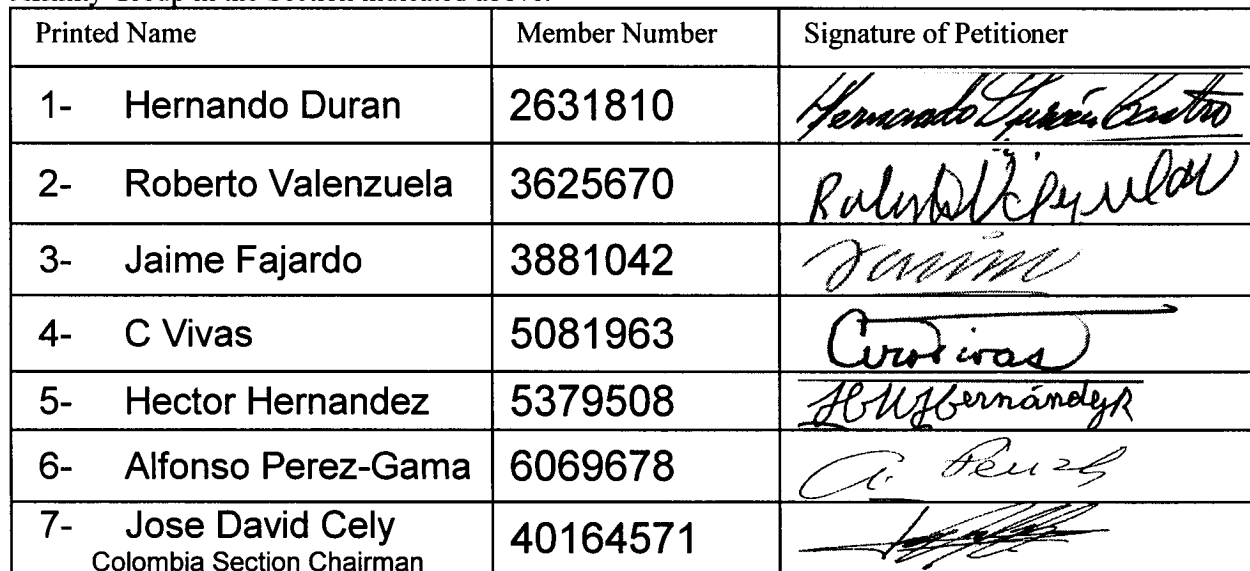 Printed Name Member Number Signature of Petitioner
1- Hernando Duran 2631810 Hernando Durán Castro
2- Roberto Valenzuela 3625670 Roberto Valenzuela
3- Jaime Fajardo 3881042
4- C Vivas 5081963 Ciro Vivas
5- Hector Hernandez 5379508 Hernández
6- Alfonso Perez-Gama 6069678 A. Perez
7- Jose David Cely 40164571
Colombia Section Chairman